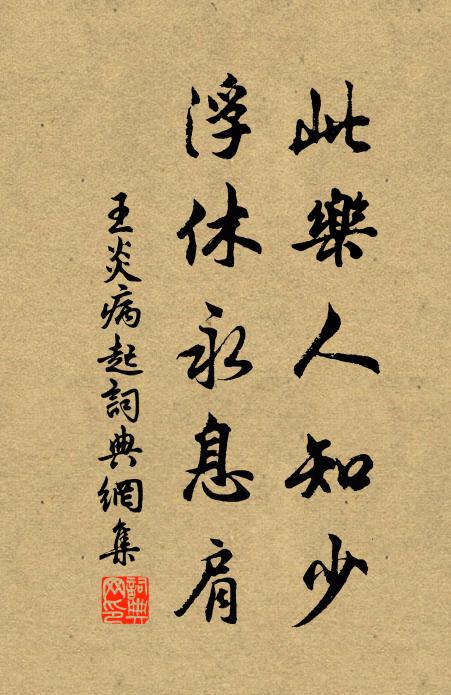 此樂人知少
浮休永息肩
王炎病起詞典網集
詞典网印